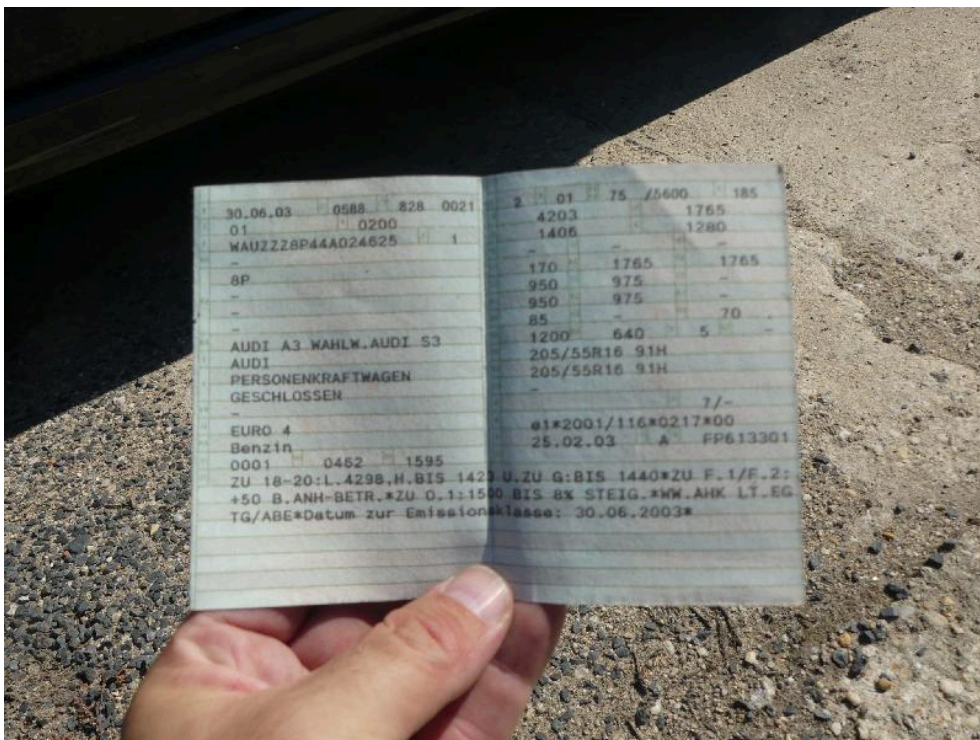 30.06.03 0588 828 0021
01 0200
WAUZZZ8P44A024625 1
-
8P
-
-
-
AUDI A3 WAHLW.AUDI S3
AUDI
PERSONENKRAFTWAGEN
GESCHLOSSEN
-
EURO 4
Benzin
0001 0462 1595
2 01 75 /5600 185
4203 1765
1406 1280
- - -
170 1765 1765
950 975 -
950 975 -
85 - 70
1200 640 5 -
205/55R16 91H
205/55R16 91H
-
7/-
e1*2001/116*0217*00
25.02.03 A FP613301
ZU 18-20:L.4298,H.BIS 1420 U.ZU G:BIS 1440*ZU F.1/F.2:
+50 B.ANH-BETR.*ZU O.1:1500 BIS 8% STEIG.*WW.AHK LT.EG
TG/ABE*Datum zur Emissionsklasse: 30.06.2003*